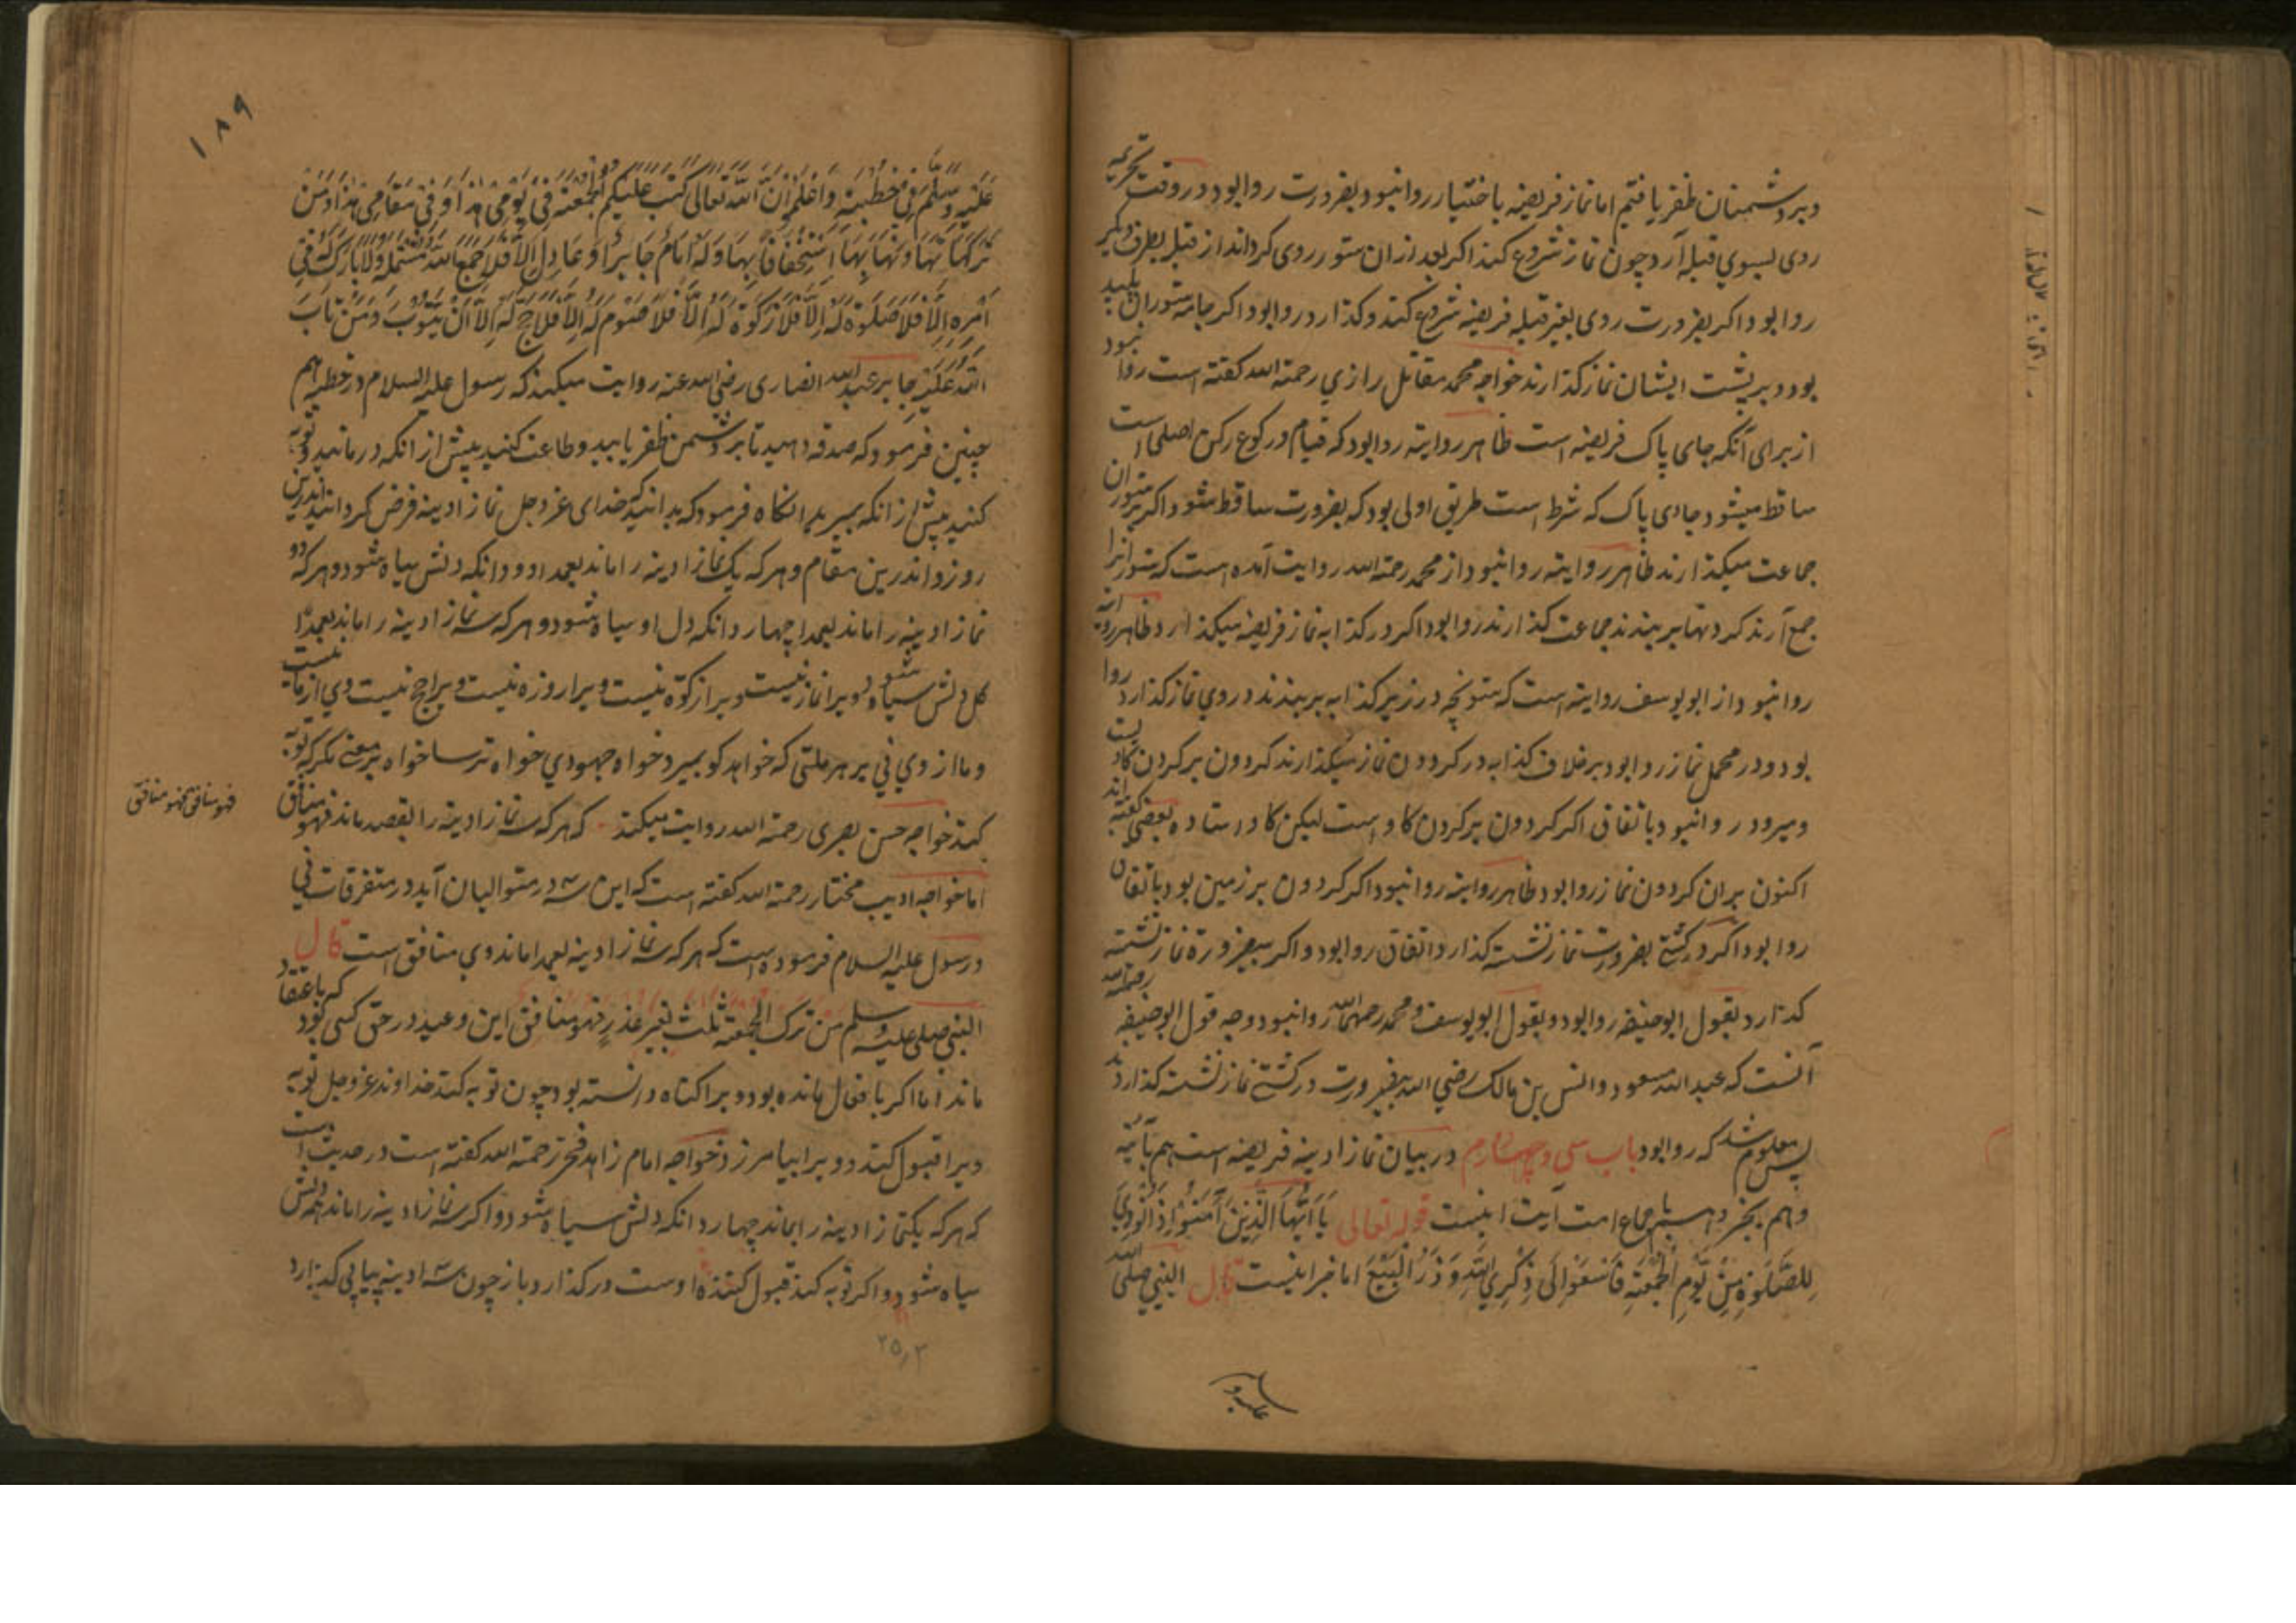 وبر دشمنان ظفر یافتیم اما نماز فریضه باختیار روا نبود و بضرورت روا بود و در وقت تحریمه
روی بسوي قبله آرد چون نماز شروع کند اکر بعد از ان ستور روی کرداند از قبله بطرف دیکر
روا بود اکر بضرورت روی بغیر قبله فریضه شروع کند و کذارد روا بود اکر جامه ستوران پلید
بود و بر پشت ایشان نماز کذارند خواجه محمد مقاتل رازي رحمة الله کفته است روا نبود
از برای آنکه جای پاک فریضه است ظاهر روایته روا بود که قیام و رکوع رکن اصلی است
ساقط میشود جای پاک که شرط است طریق اولی بود که بضرورت ساقط شود اکر بر ستوران
جماعت میکذارند ظاهر روایته روا نبود از محمد رحمة الله روایت آمده است که ستورانرا
جمع آرند کردنها بر بندند جماعت کذارند روا بود اکر در کذابه نماز فریضه میکذارد ظاهر روایته
روا نبود از ابو یوسف روایته است که ستونچه در زیر کذابه بر بندند و در وي نماز کذارد روا
بود و در محمل نماز روا بود بر خلاف کذابه در کردون نماز میکذارند کردون بر کردن کاو است
ومیرود روا نبود باتفاق اکر کردون بر کردن کاو است لیکن کاو ایستاده بعضی کفته اند
اکنون بران کردون نماز روا بود ظاهر روایته روا نبود اکر کردون بر زمین بود باتفاق
روا بود اکر در کشتے بضرورت نماز نشسته کذارد اتفاق روا بود و اکر بیضرورة نماز نشسته
کذارد بقول ابوحنیفه رحمة الله روا بود و بقول ابو یوسف و محمد رحمهما الله روا نبود وجه قول ابوحنیفه
آنست که عبد الله مسعود و انس بن مالک رضي الله بیضرورت در کشتے نماز نشسته کذاردند
پس معلوم شد که روا بود باب سي وچهارم در بیان نماز ادینه فریضه است هم بآیته
وهم بخبر وهم باجماع امت آیت اینست قوله تعالی یَا اَیُّهَا الَّذِیْنَ اٰمَنُوْا اِذَا نُوْدِيَ
لِلصَّلٰوةِ مِنْ یَّوْمِ الْجُمُعَةِ فَاسْعَوْا اِلٰی ذِکْرِ اللّٰهِ وَ ذَرُوا الْبَیْعَ اما خبر اینست قال النبي صلی الله
۱۸۹
عَلَیْهِ وَسَلَّمَ فِيْ خُطْبَتِهٖ وَاعْلَمُوْا اَنَّ اللّٰهَ تَعَالٰی کَتَبَ عَلَیْکُمُ الْجُمُعَةَ فِيْ یَوْمِيْ هٰذَا وَ فِيْ مَقَامِيْ هٰذَا وَمَنْ
تَرَکَهَا تَهَاوُنًا بِهَا اَوِ اسْتِخْفَافًا بِهَا وَلَهٗ اِمَامٌ جَابِرٌ اَوْ عَادِلٌ اَلَا فَلَا جَمَعَ اللّٰهُ شَمْلَهٗ وَلَا بَارَکَ لَهٗ فِيْ
اَمْرِهٖ اَلَا فَلَا صَلٰوةَ لَهٗ اَلَا فَلَا زَکٰوةَ لَهٗ اَلَا فَلَا صَوْمَ لَهٗ اَلَا فَلَا حَجَّ لَهٗ اِلَّا اَنْ یَتُوْبَ وَمَنْ تَابَ
اللّٰهُ عَلَیْهِ جابر عبد الله انصاری رضي الله عنه روایت میکند که رسول علیه السلام در خطبه هم
چنین فرمود که صدقه دهید تا بر دشمن ظفر یابید و طاعت کنید پیش از انکه درمانید و توبه
کنید پیش از انکه بمیرید انکاه فرمود که بدانید که خدای عز وجل نماز ادینه فرض کردانید اندرین
روز و اندرین مقام و هر که یک نماز ادینه را ماند بعمدا دو دانکه دلش سیاه شود و هر که دو
نماز ادینه را ماند بعمدا چهار دانکه دل او سیاه شود و هر که سه نماز ادینه را ماند بعمدا
کل دلش سیاه شود و ویرا نماز نیست ویرا زکوة نیست ویرا روزه نیست ویرا حج نیست وي از ما نیست
و ما از وي ني بر هر ملتی که خواهد کو بمیرد خواه جهودي خواه ترسا خواه بر مغے مکر که توبه
کند خواجه حسن بصری رحمة الله روایت میکند که هر که سه نماز ادینه را بقصد ماند فهو منافق
فهو منافق فهو منافق
اما خواجه ادیب مختار رحمة الله کفته است که این سه در متوالیان آید در متفرقات ني
و رسول علیه السلام فرموده است که هر که سه نماز ادینه بعمدا ماند وي منافق است قال
النبي صلی علیه وسلم من ترک الجمعة ثلث بغیر عذرٍ فهو منافق این وعید در حق کسی بود که باعتقاد
ماند اما اکر باغفال مانده بود و ویرا کناه دانسته بود چون توبه کند خداوند عز وجل توبه
ویرا قبول کند و ویرا بیامرزد خواجه امام زاهد فخر رحمة الله کفته است در حدیث است
که هر که یکنماز ادینه را بماند چهار دانکه دلش سیاه شود و اکر سه نماز ادینه را ماند همه دلش
سیاه شود و اکر توبه کند قبول کننده اوست در کذارد باز چون سه ادینه پیاپی کذارد